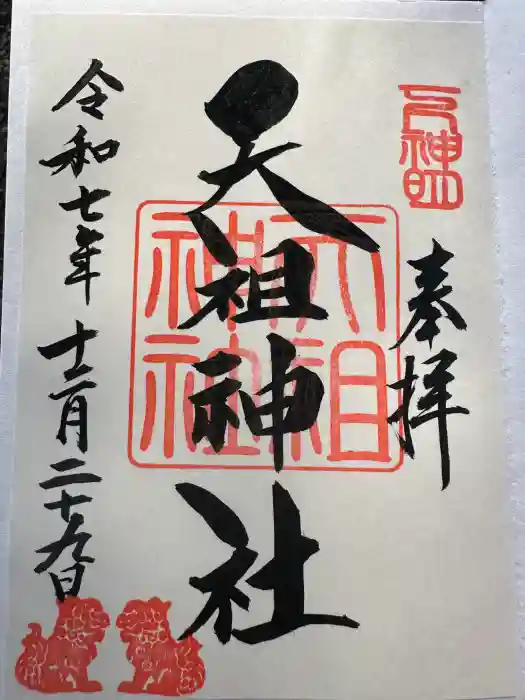 奉拝
天祖神社
天祖神社
令和七年 十二月二十九日